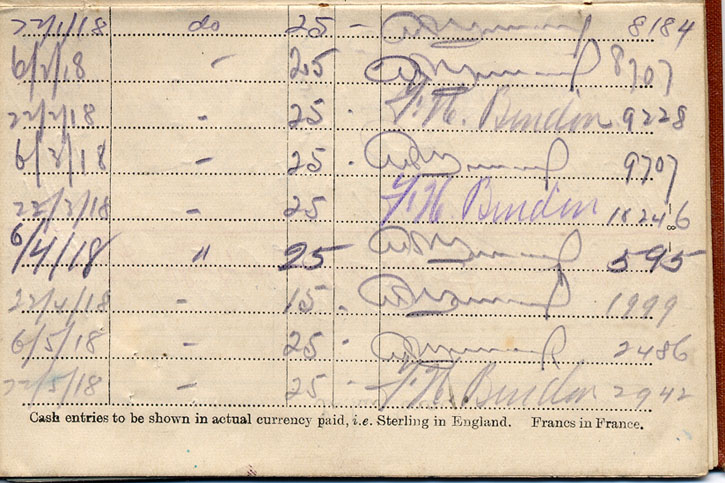 22/1/18 do 25 - 8184
6/2/18 " 25 8707
22/2/18 - 25 - F. H. Bindin 9228
6/3/18 - 25 - 9707
22/3/18 - 25 F. H. Bindin 10246
6/4/18 " 25 595
22/4/18 - 15 - 1999
6/5/18 - 25 - 2486
22/5/18 - 25 - F. H. Bindin 2942
Cash entries to be shown in actual currency paid, i.e. Sterling in England. Francs in France.